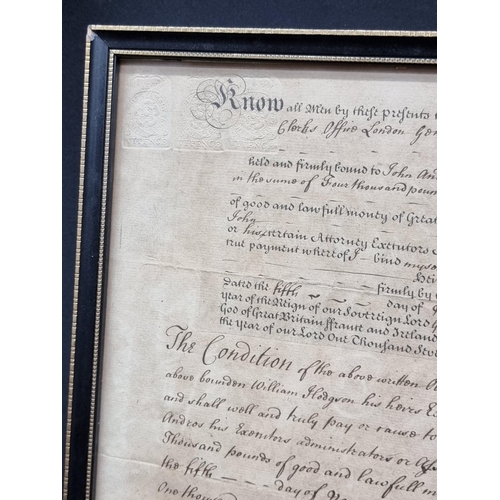 Know all Men by these presents
Clerks Office London Gen
held and firmly bound to John And
in the sume of Four thousand poun
of good and lawfull money of Great
John
or his certain Attorney Executors
true payment whereof I bind myse
Hei
firmly by
Dated the fifth day of
year of the Reign of our Sovereign Lord
God of Great Britain ffrance and Ireland
the year of our Lord One Thousand Sev
The Condition of the above written
above bounden William Hodgson his heirs Ex
and shall well and truly pay or cause to
Andros his Executors administrators or
Thousand pounds of good and lawfull m
the fifth day of
One thous